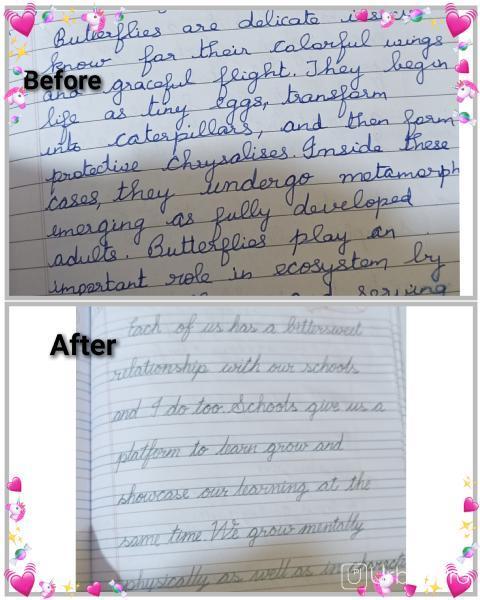 Butterflies are delicate
know for their colorful wings
Before
and graceful flight. They begin
life as tiny eggs, transform
into caterpillars, and then form
protective chrysalises. Inside these
cases, they undergo metamorph
emerging as fully developed
adults. Butterflies play an
important role in ecosystem by
serving
After
Each of us has a bittersweet
relationship with our schools
and I do too. Schools give us a
platform to learn grow and
showcase our learning at the
same time. We grow mentally
physically as well as in